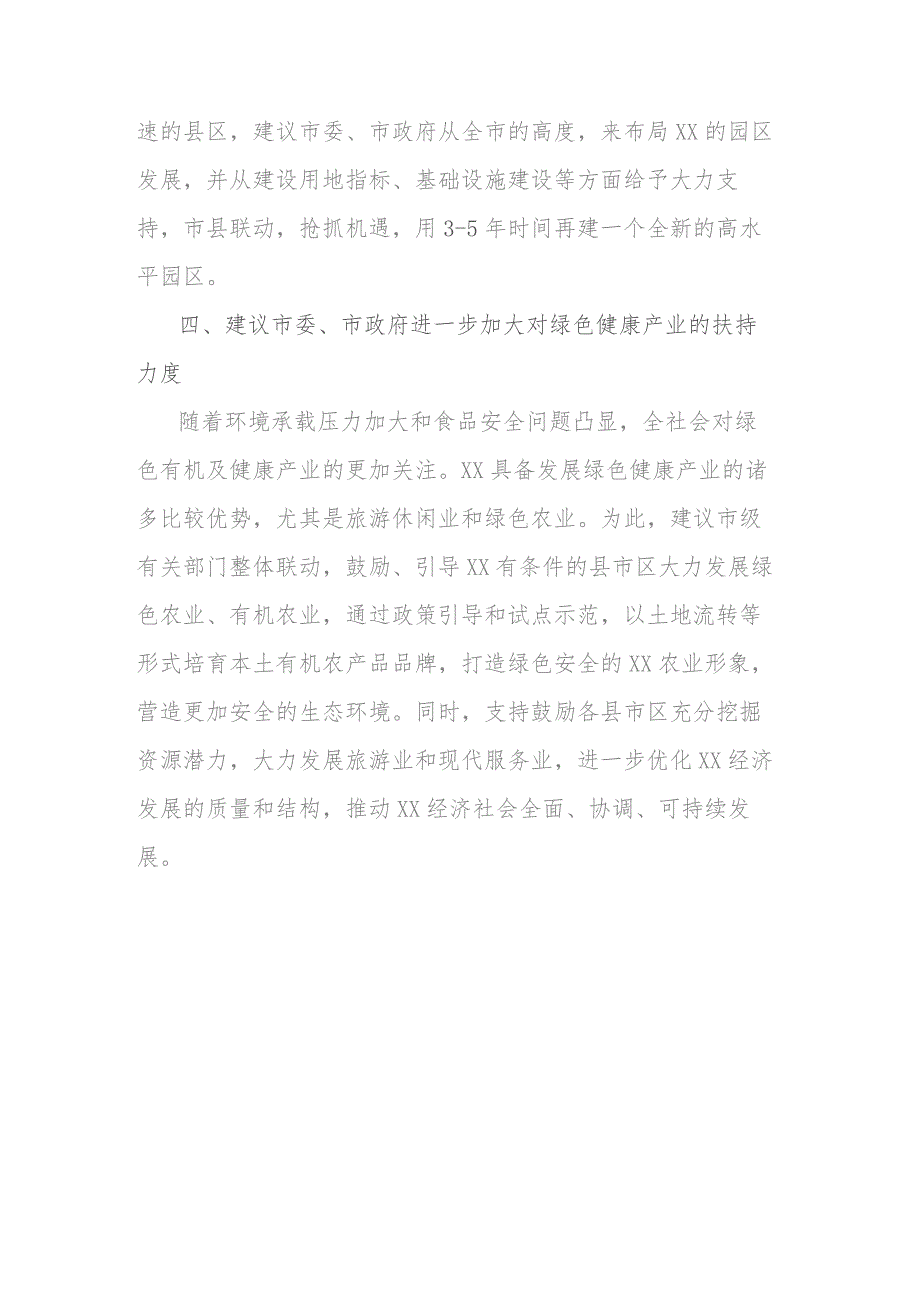 速的县区，建议市委、市政府从全市的高度，来布局 XX 的园区
发展，并从建设用地指标、基础设施建设等方面给予大力支
持，市县联动，抢抓机遇，用 3-5 年时间再建一个全新的高水
平园区。
四、建议市委、市政府进一步加大对绿色健康产业的扶持
力度
随着环境承载压力加大和食品安全问题凸显，全社会对绿
色有机及健康产业的更加关注。XX 具备发展绿色健康产业的诸
多比较优势，尤其是旅游休闲业和绿色农业。为此，建议市级
有关部门整体联动，鼓励、引导 XX 有条件的县市区大力发展绿
色农业、有机农业，通过政策引导和试点示范，以土地流转等
形式培育本土有机农产品品牌，打造绿色安全的 XX 农业形象，
营造更加安全的生态环境。同时，支持鼓励各县市区充分挖掘
资源潜力，大力发展旅游业和现代服务业，进一步优化 XX 经济
发展的质量和结构，推动 XX 经济社会全面、协调、可持续发
展。